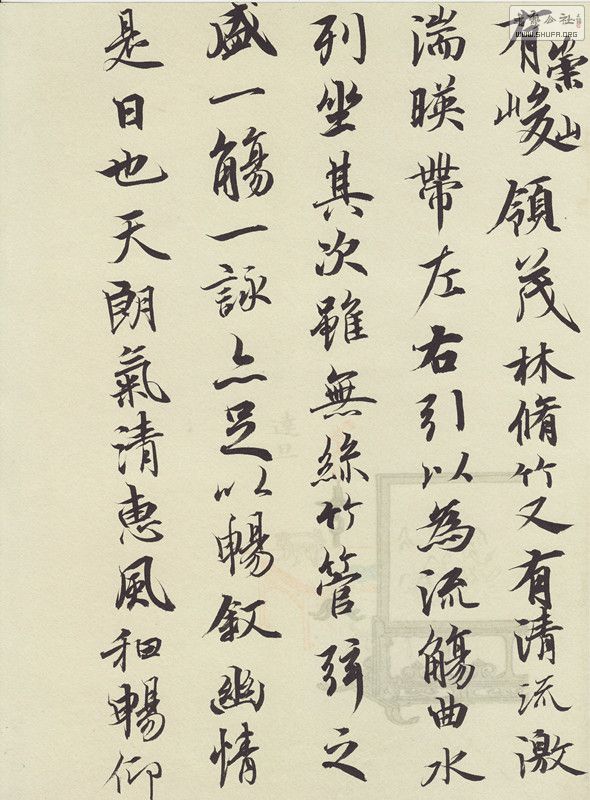 有崇山峻領茂林脩竹又有清流激
湍暎帶左右引以為流觴曲水
列坐其次雖無絲竹管弦之
盛一觴一詠亦足以暢叙幽情
是日也天朗氣清惠風和暢仰
WWW.SHUFA.ORG